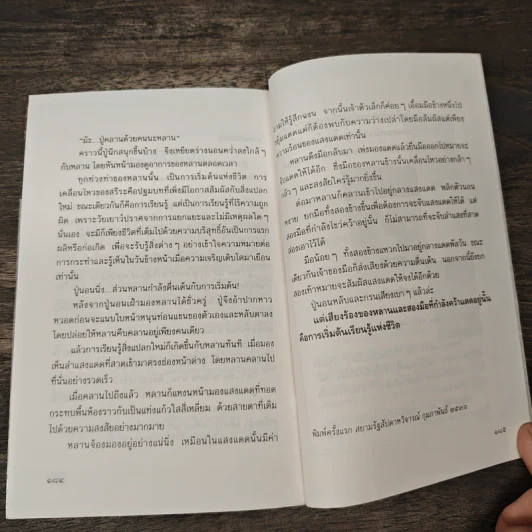 "มัะ...ปู่คลานด้วยคนนะหลาน"
คราวนี้ปู่นึกสนุกขึ้นบ้าง จึงเหยียดร่างนอนคว่ำลงใกล้ๆ
กับหลาน โดยหันหน้ามองดูอาการของหลานตลอดเวลา
ทุกท่วงท่าของหลานนั้น เป็นการเริ่มต้นแห่งชีวิต การ
เคลื่อนไหวของสรีระคือปฐมบทที่เพิ่งมีโอกาสสัมผัสกับสิ่งแปลก
ใหม่ ขณะเดียวกันก็คือการเรียนรู้ แต่เป็นการเรียนรู้ที่ไร้ความถูก
ผิด เพราะวัยเยาว์ปราศจากการแยกแยะและไม่มีเหตุผลใดๆ
นั่นเอง จะมีก็เพียงชีวิตที่เต็มไปด้วยความบริสุทธิ์อันเป็นการแรก
ผลิหรือก่อเกิด เพื่อจะรับรู้สิ่งต่างๆ อย่างเข้าใจความหมายต่อ
การกระทำและรู้เห็นในวันข้างหน้าเมื่อความเจริญเติบโตมาเยือน
เท่านั้น
ปู่นอนนิ่ง...ส่วนหลานกำลังตื่นเต้นกับการเริ่มต้น!
หลังจากปู่นอนเฝ้ามองหลานได้ชั่วครู่ ปู่จึงอ้าปากหาว
หวอดก่อนจะแนบใบหน้าหนุนท่อนแขนของตัวเองและหลับตาลง
โดยปล่อยให้หลานคืบคลานอยู่เพียงคนเดียว
แล้วการเรียนรู้สิ่งแปลกใหม่ก็เกิดขึ้นกับหลานทันที เมื่อมอง
เห็นลำแสงแดดที่สาดเข้ามาตรงช่องหน้าต่าง โดยหลานคลานไป
ที่นั่นอย่างรวดเร็ว
เมื่อคลานไปถึงแล้ว หลานก็แหงนหน้ามองแสงแดดที่ทอด
กระทบพื้นห้องราวกับเป็นแท่งแก้วใสสี่เหลี่ยม ด้วยสายตาที่เต็ม
ไปด้วยความสงสัยอย่างมากมาย
หลานจ้องมองอยู่อย่างแน่นิ่ง เหมือนในแสงแดดนั้นมีค่า
๑๘๔
ให้รู้สึกฉงน จากนั้นเจ้าตัวเล็กก็ค่อยๆ เอื้อมมือข้างหนึ่งไป
แสงแดดแต่ก็ต้องพบกับความว่างเปล่าโดยมือสัมผัสแต่เพียง
ความร้อนของแสงแดดเท่านั้น
หลานดึงมือกลับมา เพ่งมองแดดแล้วยื่นมือออกไปหมายจะ
แสงแดดให้ได้อีก ซึ่งมือของหลานข้างนั้นเคลื่อนไหวอย่างกล้าๆ
แล้วๆ และสงสัยใคร่รู้มากยิ่งขึ้น
ต่อมาหลานก็คลานเข้าไปอยู่กลางแสงแดด พลิกตัวนอน
หงาย ยกมือทั้งสองข้างขึ้นเพื่อต้องการจะจับแสงแดดให้ได้ แต่
สองมือที่กำลังไขว่คว้าอยู่นั้น ก็ไม่สามารถที่จะจับลำแสงที่สาด
ส่องเอาไว้ได้
มือน้อยๆ ทั้งสองข้างแหวกไปมาอยู่กลางแดดพัลวัน ขณะ
เดียวกันเจ้าของมือก็ส่งเสียงด้วยความตื่นเต้น นอกจากนี้ยังยก
สองเท้าหมายจะสัมผัสแสงแดดให้จงได้อีกด้วย
ปู่นอนหลับและกรนเสียงเบาๆ แล้วล่ะ
แต่เสียงร้องของหลานและสองมือที่กำลังคว้าแดดอยู่นั้น
คือการเริ่มต้นเรียนรู้แห่งชีวิต
พิมพ์ครั้งแรก สยามรัฐสัปดาหวิจารณ์ กุมภาพันธ์ ๒๕๓๖
๑๘๕